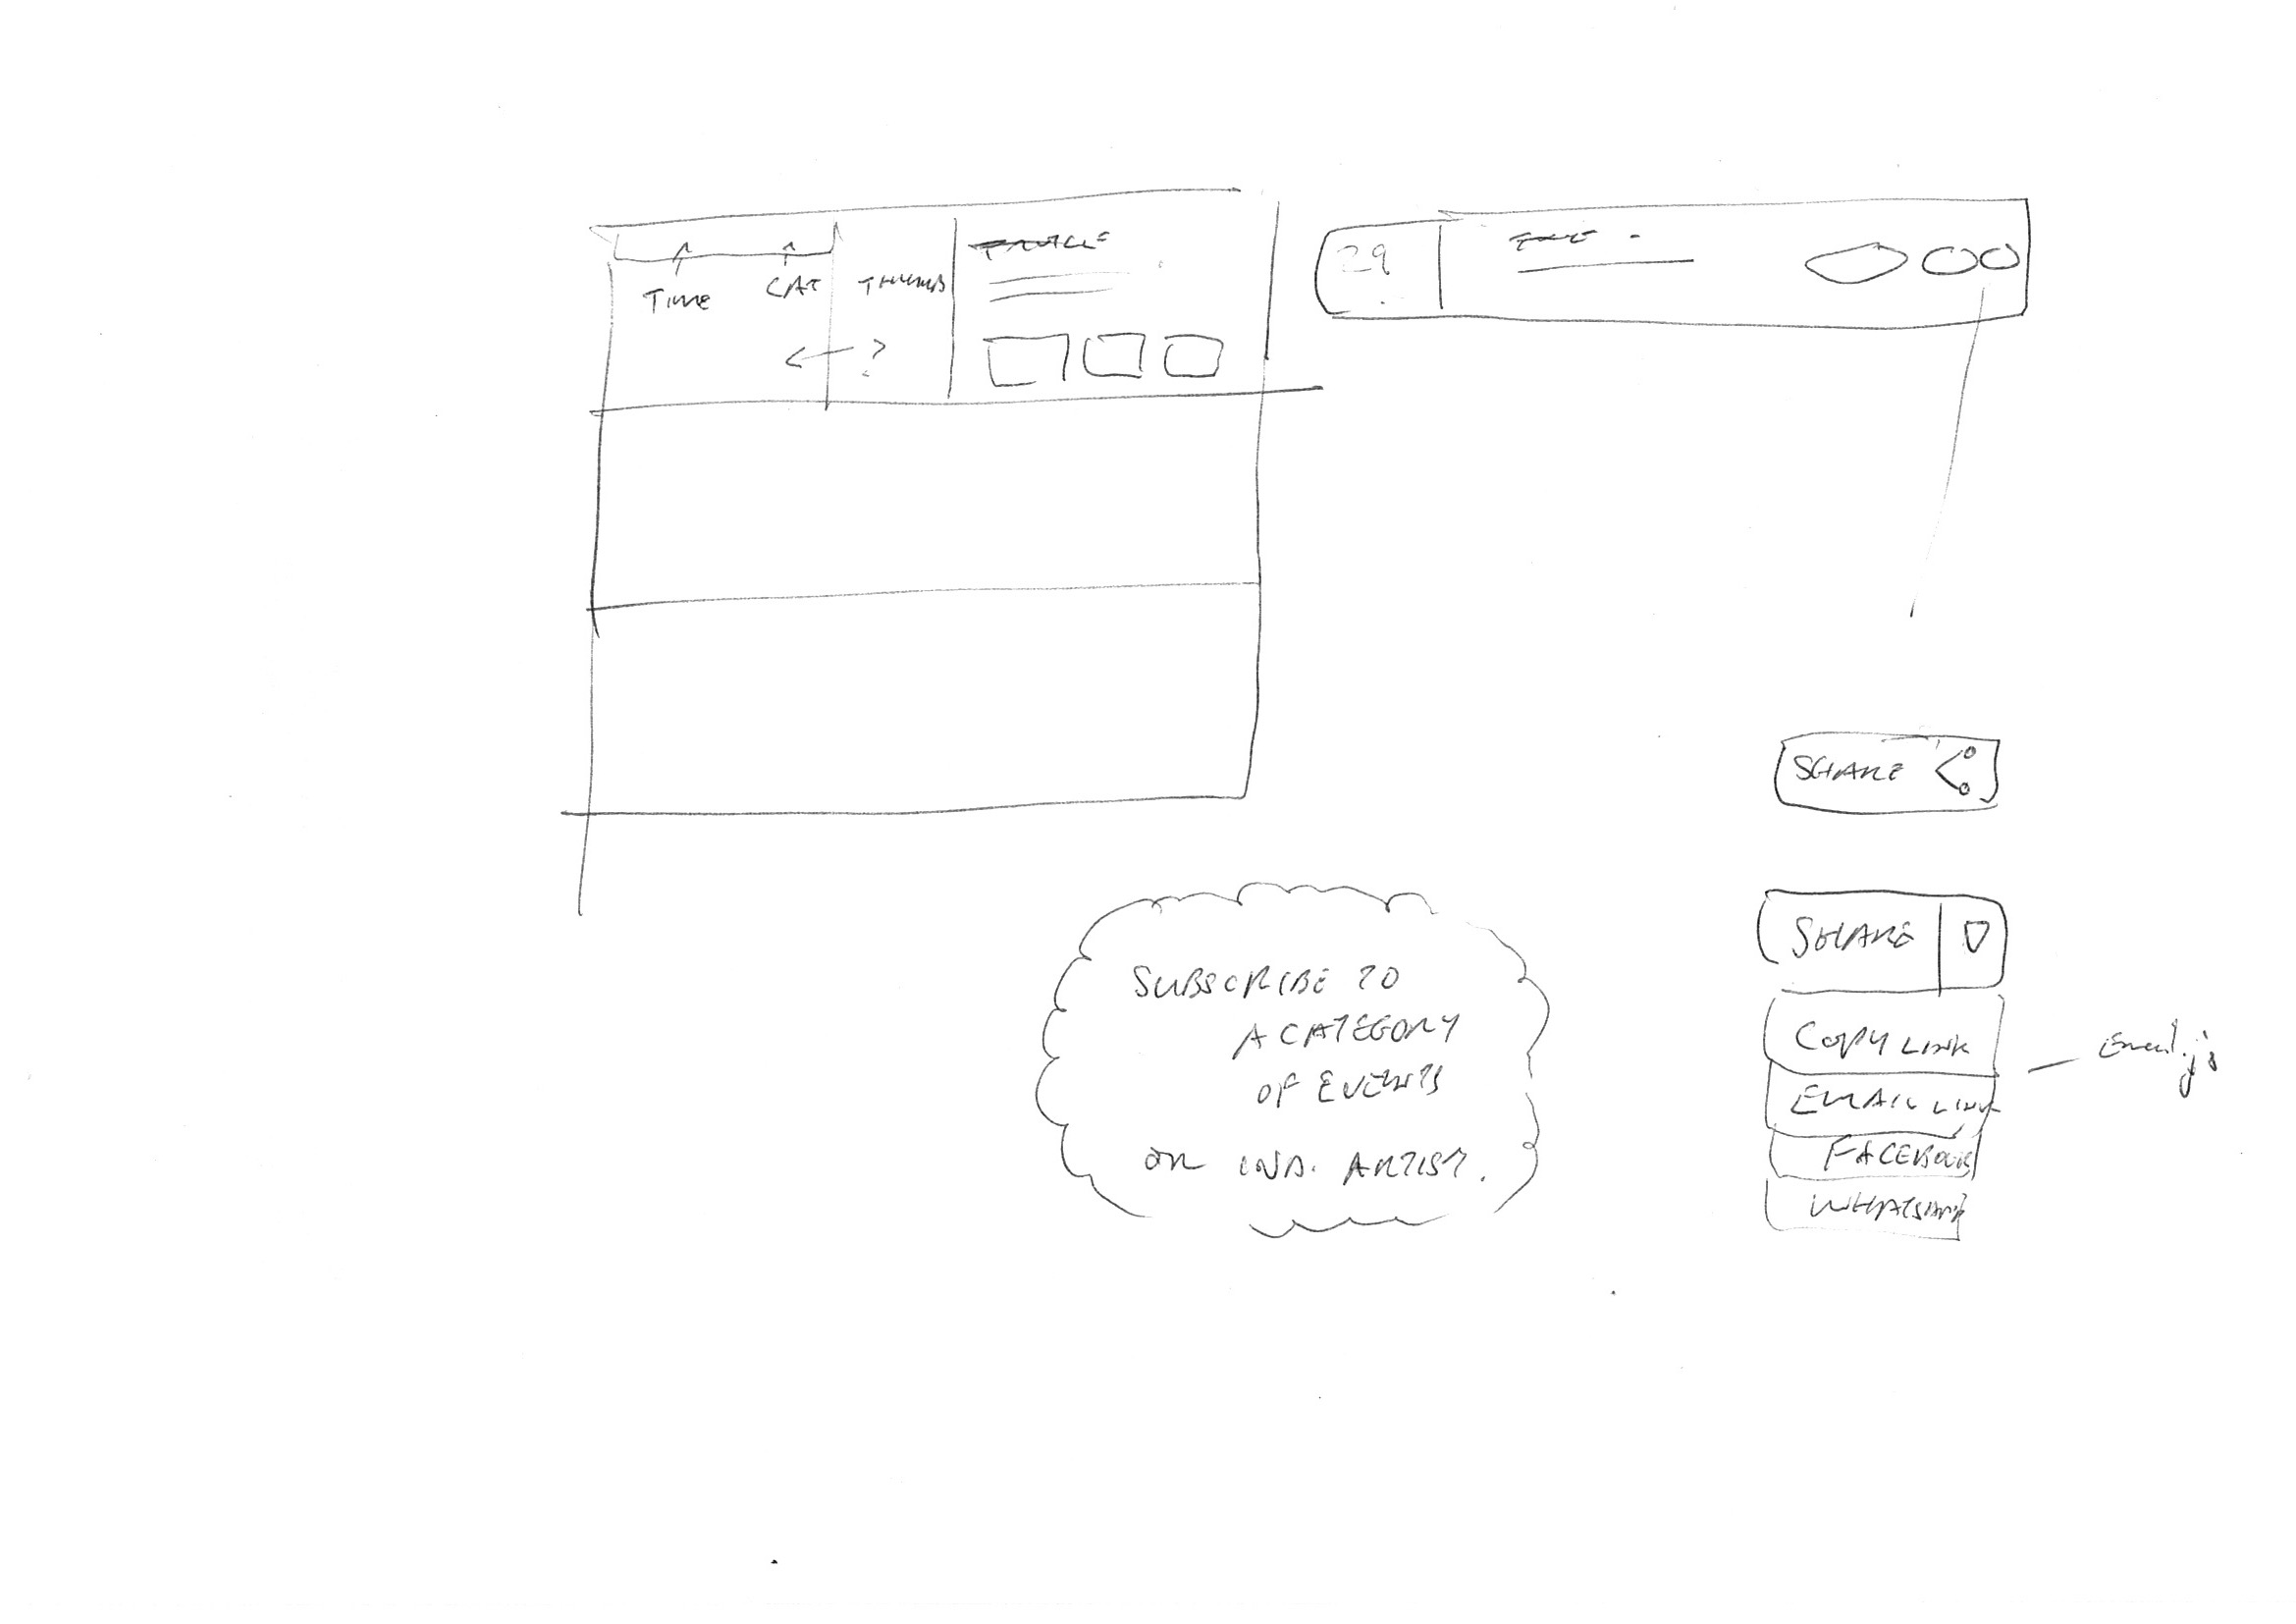 TIME
CAT
THUMB
?
29
SHARE
SHARE
COPY LINK
EMAIL LINK
FACEBOOK
WHATSAPP
Email.js
SUBSCRIBE TO
A CATEGORY
OF EVENTS
OR IND. ARTIST.